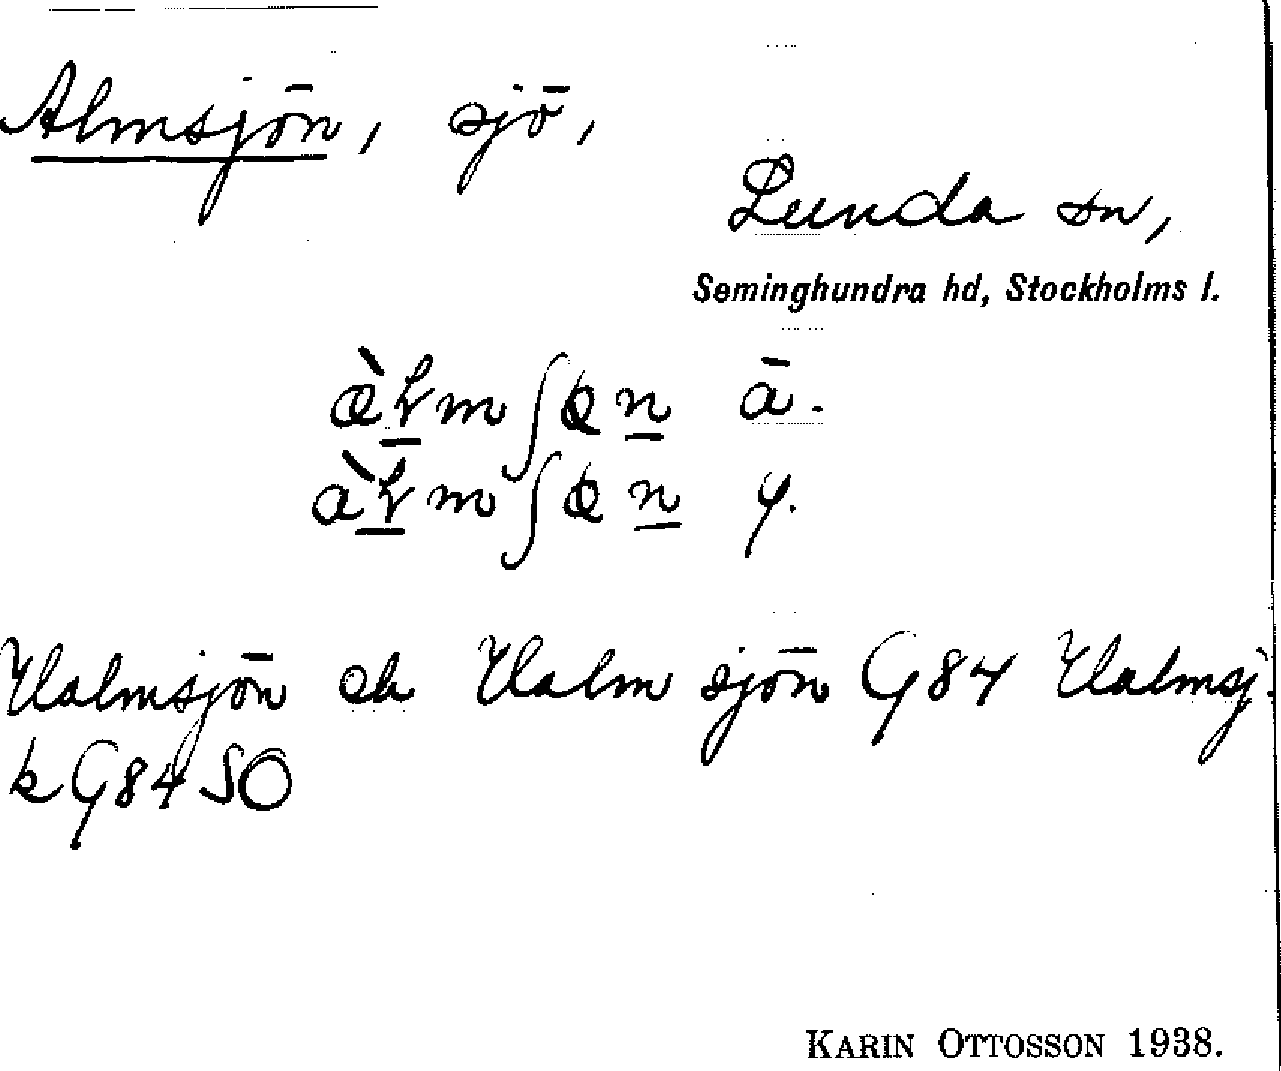 Almsjön, sjö,
Lunda sn,
Seminghundra hd, Stockholms l.
ä.
y.
Halmsjön och Halm sjön G84 Halmsj.
k G84 SO
KARIN OTTOSSON 1938.